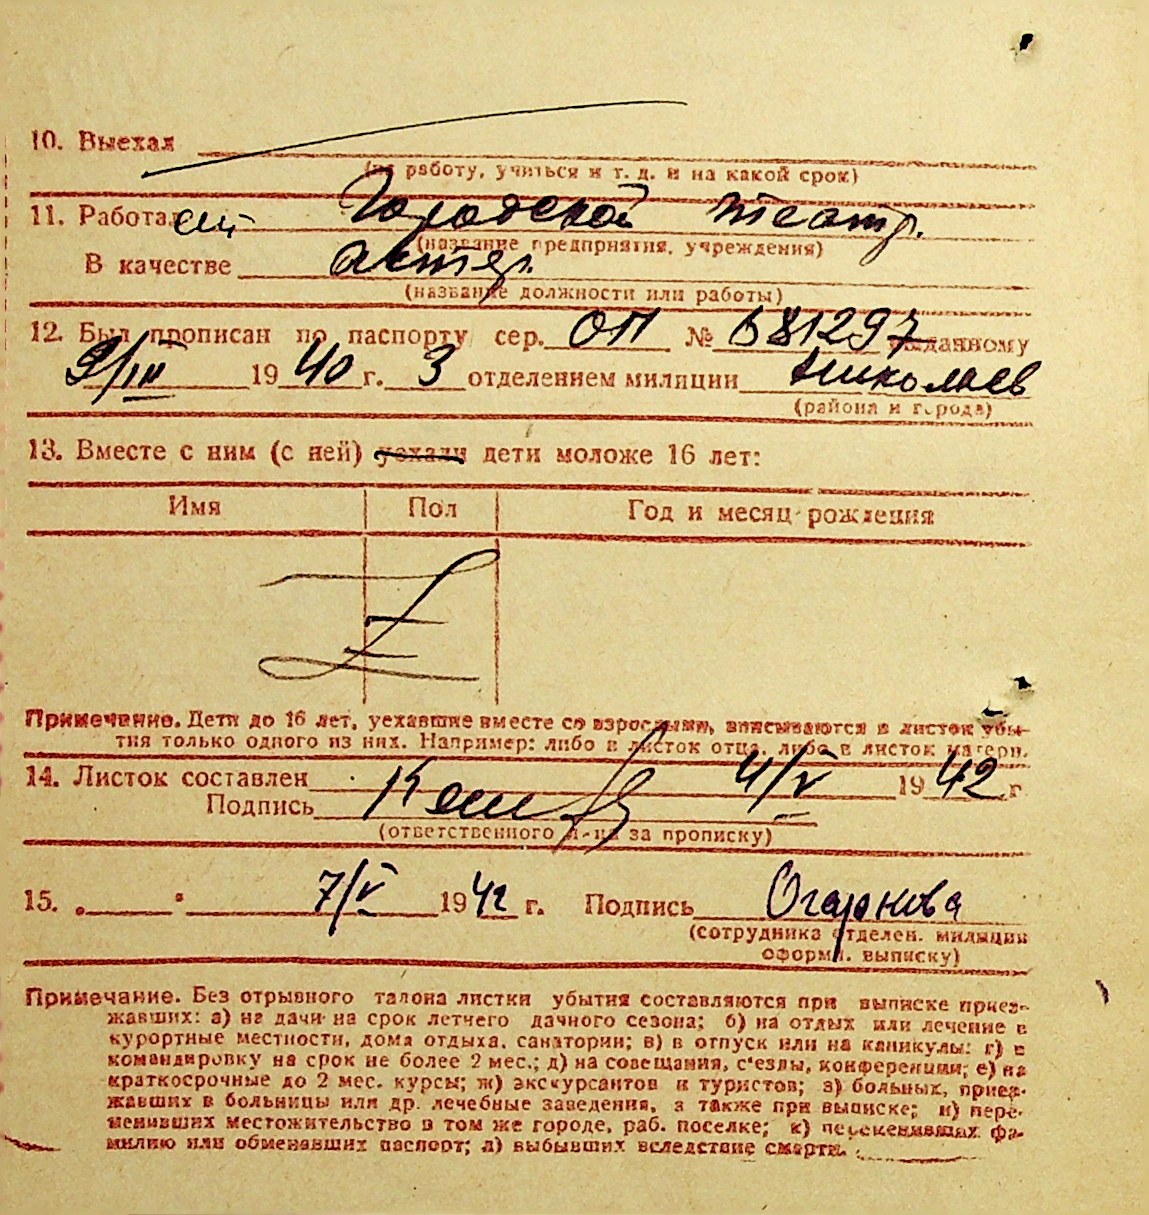 10. Выехал
(на работу, учиться и т. д. и на какой срок)
11. Работает Городской театр.
(название предприятия, учреждения)
В качестве актер.
(название должности или работы)
12. Был прописан по паспорту сер. ОП № 581297 выданному
9/III 1940 г. 3 отделением милиции Николаев
(района и города)
13. Вместе с ним (с ней) уехали дети моложе 16 лет:
Имя Пол Год и месяц рождения
Примечание. Дети до 16 лет, уехавшие вместе со взрослыми, вписываются в листок убы-
тия только одного из них. Например: либо в листок отца, либо в листок матери.
14. Листок составлен 4/V 1942 г
Подпись
(ответственного л-ца за прописку)
15. „ " 7/V 1942 г. Подпись Огаркова
(сотрудника отделен. милиции
оформл. выписку)
Примечание. Без отрывного талона листки убытия составляются при выписке приез-
жавших: а) на дачи на срок летнего дачного сезона; б) на отдых или лечение в
курортные местности, дома отдыха, санатории; в) в отпуск или на каникулы: г) в
командировку на срок не более 2 мес.; д) на совещания, с'езды, конференции; е) на
краткосрочные до 2 мес. курсы; ж) экскурсантов и туристов; з) больных, приез-
жавших в больницы или др. лечебные заведения, а также при выписке; и) пере-
менивших местожительство в том же городе, раб. поселке; к) переменивших фа-
милию или обменявших паспорт; л) выбывших вследствие смерти.